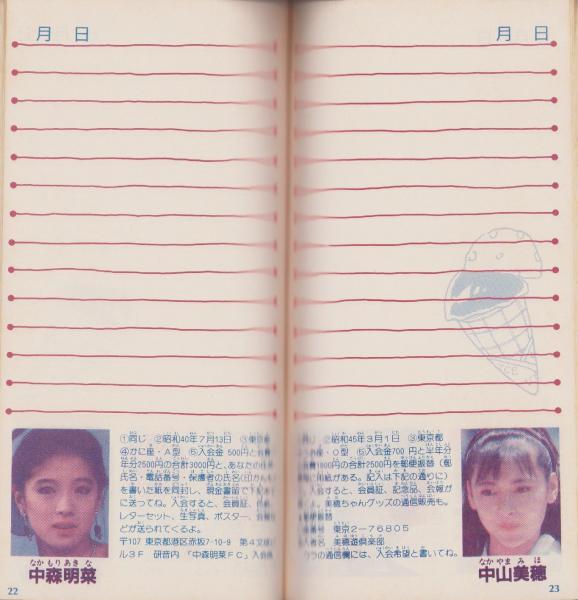 月 日
①同じ ②昭和40年7月13日 ③東京都
④かに座・A型 ⑤入会金 500円と会費
年分2500円の合計3000円と、あなたの住所
氏名・電話番号・保護者の氏名
を書いた紙を同封し、現金書留で下記
に送ってね。入会すると、会員証、
レターセット、生写真、ポスター、会報
どが送られてくるよ。
〒107 東京都港区赤坂7-10-9 第4文成
ル3F 研音内「中森明菜FC」入会
なかもりあきな
中森明菜
22
月 日
同じ ②昭和45年3月1日 ③東京都
座・O型 ⑤入会金700円と半年分
1800円の合計2500円を郵便振替（郵
に用紙がある。記入は下記の通りに）
入会すると、会員証、記念品、会報が
よ。美穂ちゃんグッズの通信販売も。
替
番号 東京2—76805
者名 美穂遊倶楽部
ウラの通信欄には、入会希望と書いてね。
なかやま みほ
中山美穂
23